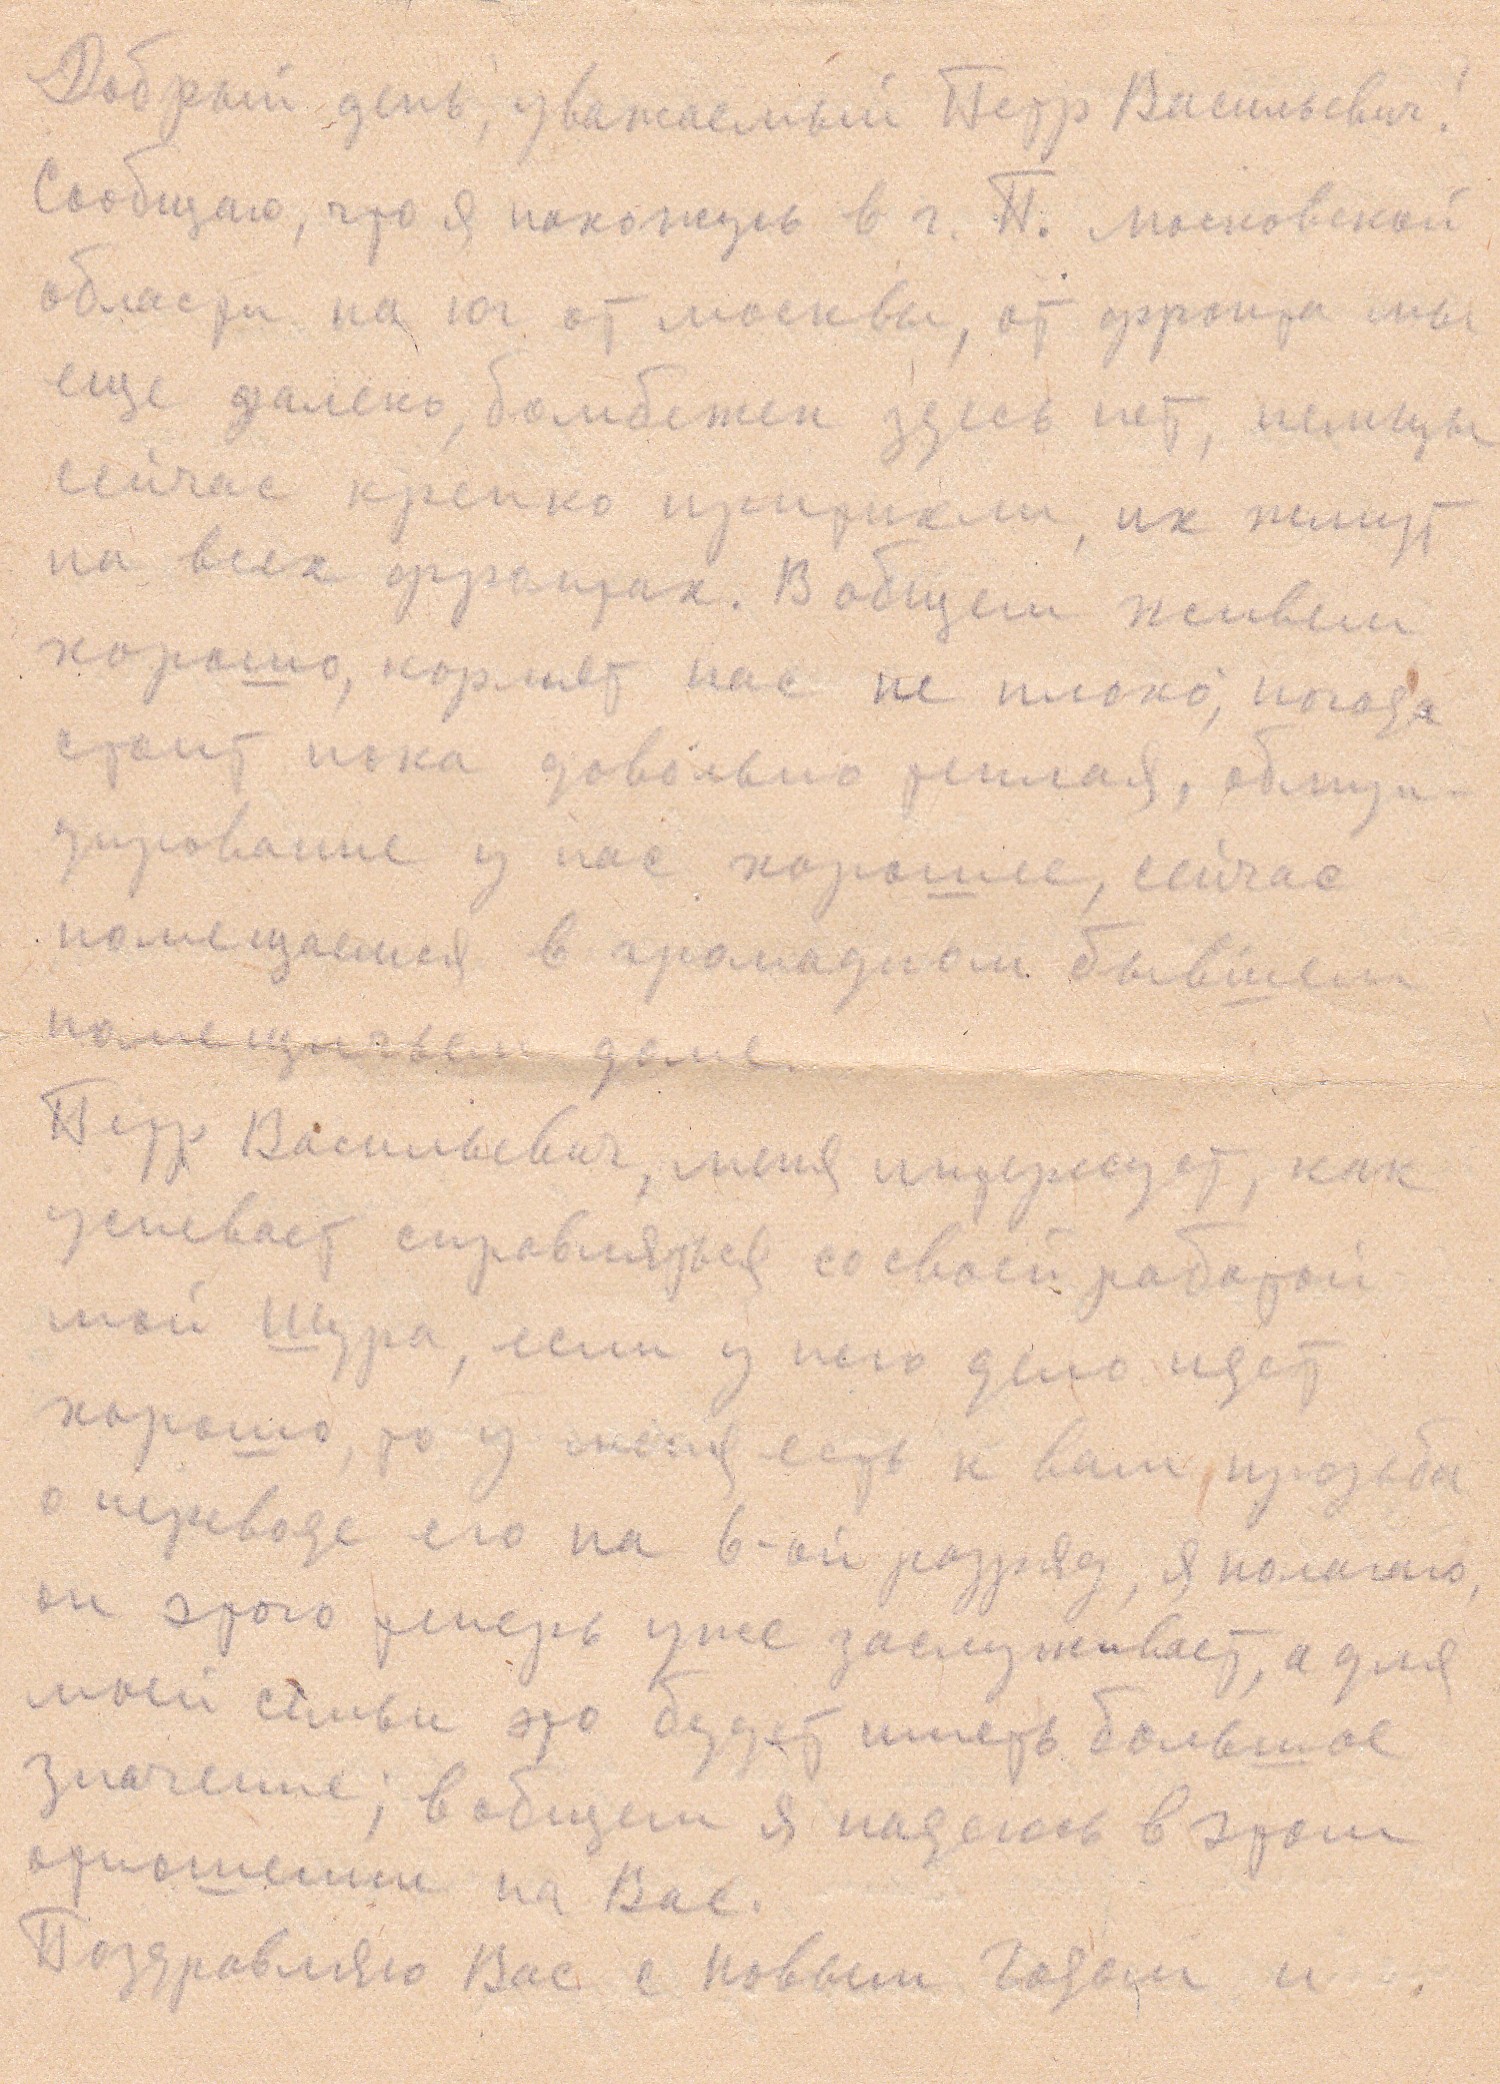 Добрый день, уважаемый Петр Васильевич!
Сообщаю, что я нахожусь в г. П. московской
области на юг от москвы, от фронта мы
еще далеко, бомбежек здесь нет, немцы
сейчас крепко притихли, их жмут
на всех фронтах. В общем живем
хорошо, кормят нас не плохо, погода
стоит пока довольно теплая, обмун-
дирование у нас хорошее, сейчас
помещаемся в громадном бывшем
помещичьем доме.
Петр Васильевич, меня интересует, как
успевает справляться со своей работой
мой Шура, если у него дело идет
хорошо, то у меня есть к вам просьба
о переводе его на 6-ой разряд, я полагаю,
он этого теперь уже заслуживает, а для
моей семьи это будет иметь большое
значение; в общем я надеюсь в этом
отношении на Вас.
Поздравляю Вас с Новым Годом и